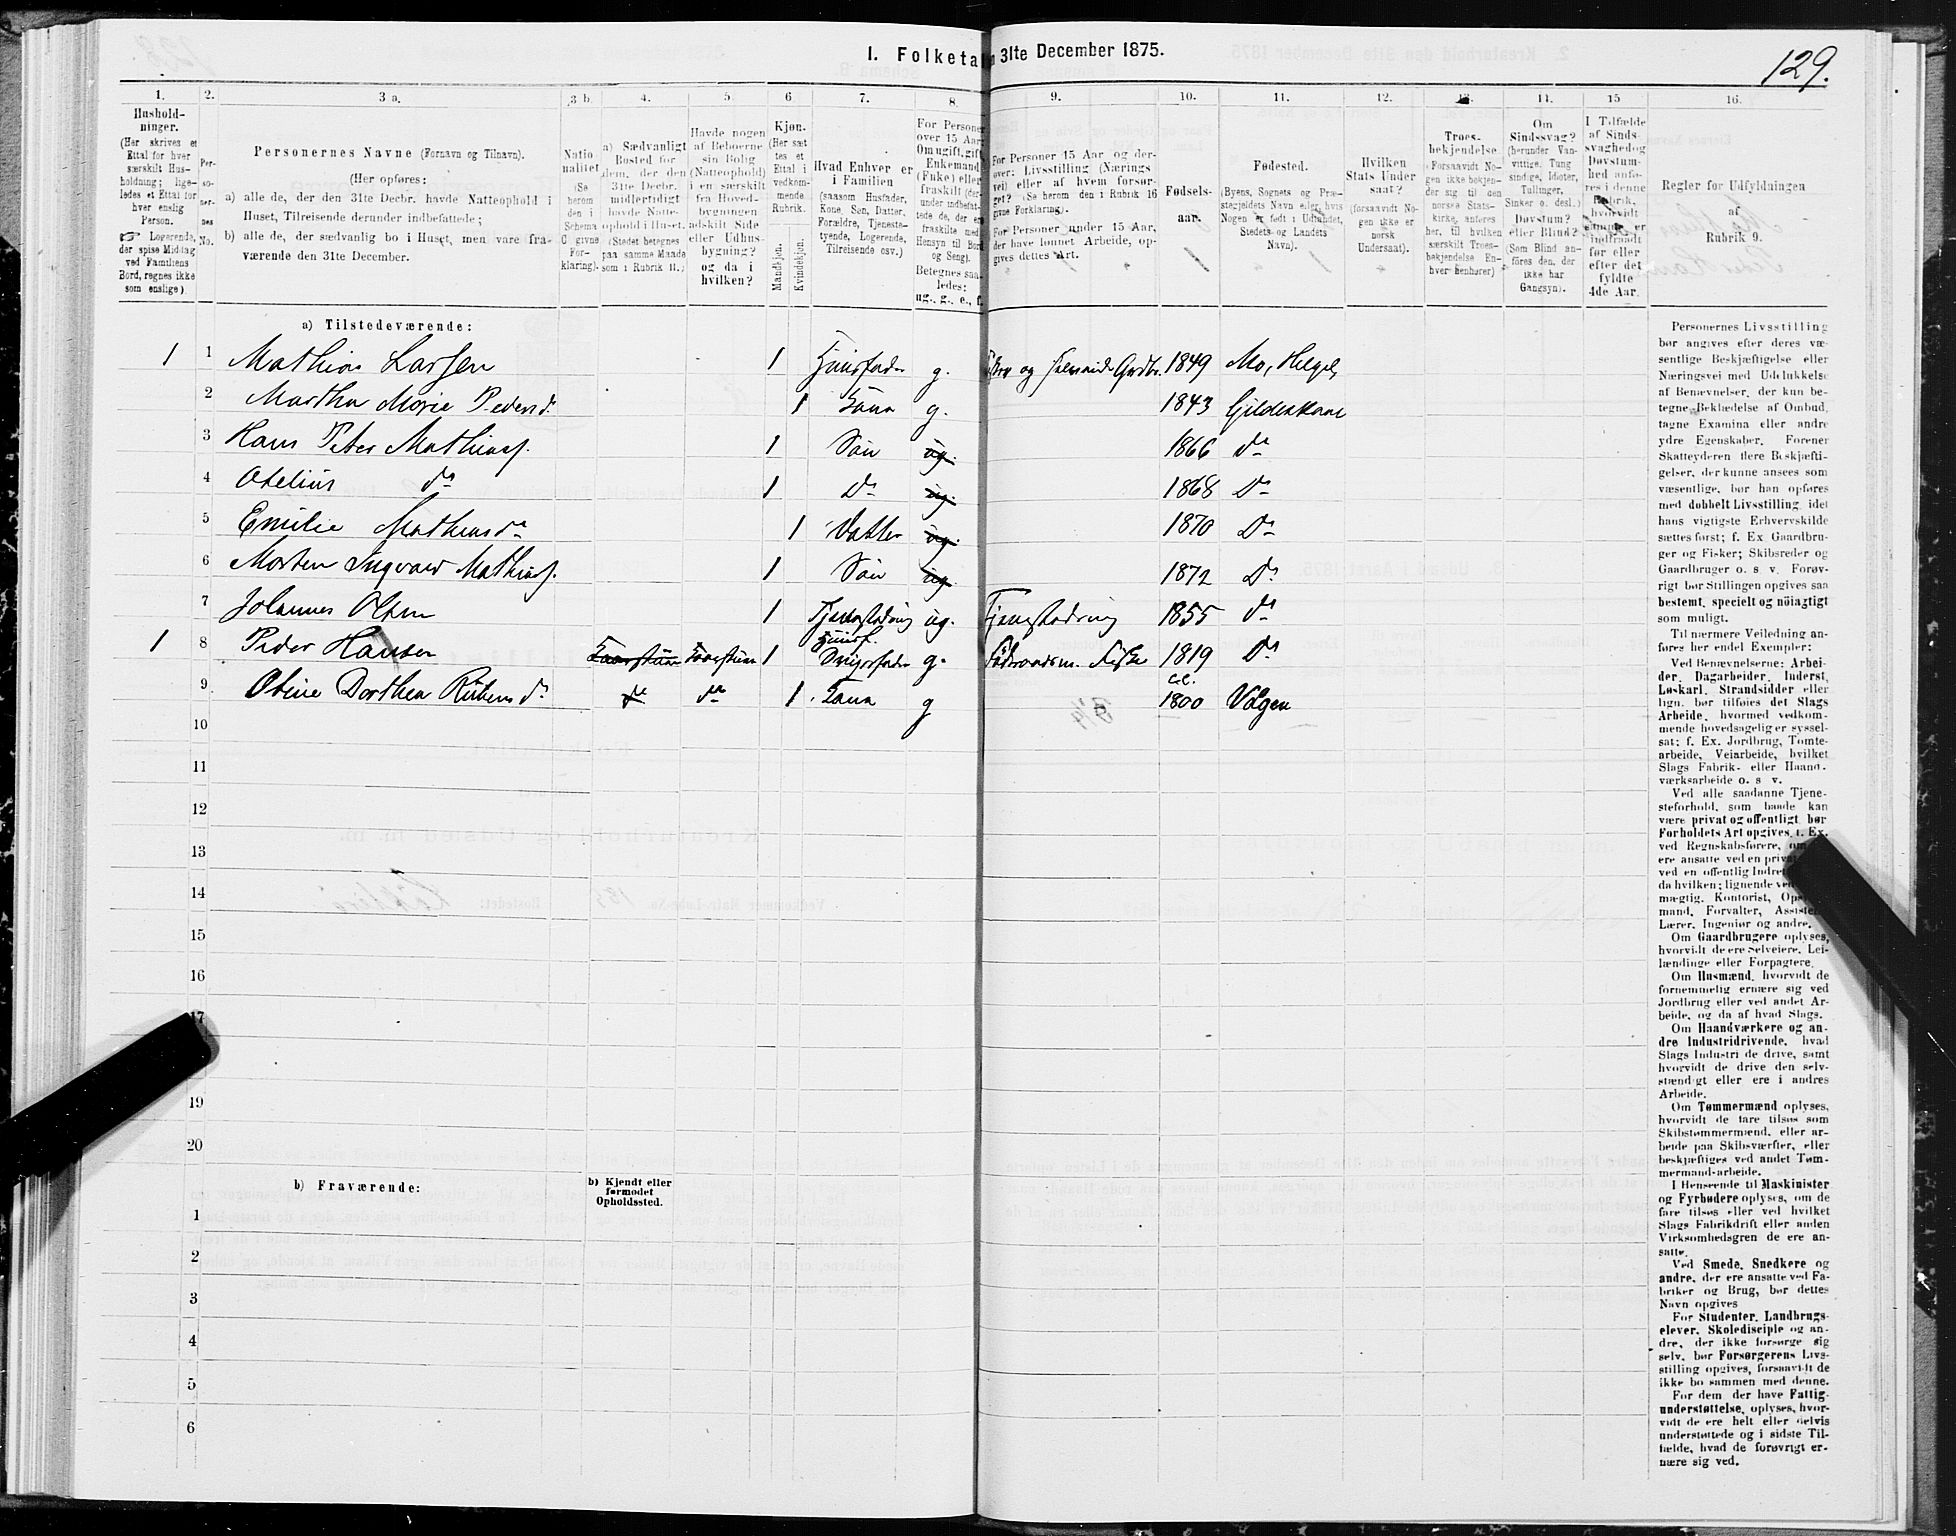 129.
I. Folketa 31te December 1875.
1. 2. 3 a. 3 b. 4. 5. 6 7. 8. 9. 10. 11. 12. 13. 14. 15 16.
Hushold-
ninger.
(Her skrives et
Ettal for hver
særskilt Hus-
holdning; lige-
ledes et Ettal for
hver enslig
Person.
☞ Logerende,
der spise Middag
ved Familiens
Bord, regnes ikke
som enslige)
Per-
so-
ner-
nes
No.
Personernes Navne (Fornavn og Tilnavn).
(Her opføres:
a) alle de, der den 31te Decbr. havde Natteophold i
Huset, Tilreisende derunder indbefattede;
b) alle de, der sædvanlig bo i Huset, men vare fra-
værende den 31te December.
Natio
nalitet
(Se
herom
den i
Schema
C givne
For-
klaring).
a) Sædvanligt
Bosted for
dem, der den
31te Decbr.
midlertidigt
havde Natte-
ophold i Huset.
(Stedet betegnes
paa samme Maade
som i Rubrik 11.;
Havde nogen
af Beboerne
sin Bolig
(Natteophold)
i en særskilt
fra Hoved-
bygningen
adskilt Side
eller Udhus-
bygning?
og da i
hvilken?
Kjøn.
(Her sæt
tes et
Ettal i
vedkom-
mende
Rubrik.
Mandkjøn.
Kvindekjøn.
Hvad Enhver er
i Familien
(saasom Husfader,
Kone, Søn, Datter,
Forældre, Tjeneste-
tyende, Logerende,
Tilreisende osv.)
For Personer
over 15 Aar:
Om ugift, gift,
Enkemand
(Enke) eller
fraskilt (der-
under indbefat-
tede de, der er
fraskilte med
Hensyn til Bord
og Seng).
Betegnes saa-
ledes:
ug., g., e., f.
For Personer 15 Aar og der-
over: Livsstilling (Nærings
vei) eller af hvem forsør-
get? (Se herom den i Rubrik 16
givne Forklaring).
For Personer under 15 Aar,
der have lønnet Arbeide, op-
gives dettes Art.
Fødsels-
aar.
Fødested.
(Byens, Sognets og Præ-
stegjeldets Navn eller, hvis
Nogen er født i Udlandet,
Stedets og Landets
Navn).
Hvilken
Stats Under
saat?
(forsaavidt No-
gen ikke er
norsk
Undersaat).
Troes-
bekjendelse.
(Forsaavidt No-
gen ikke bekjen-
der sig til den
norske Stats-
kirke, anføres
her, til hvilken
særskilt Troes-
bekjendelse En-
hver henhører)
Om
Sindssvag?
(herunder Van-
vittige, Tung
sindige, Idioter,
Tullinger,
Sinker o. desl.)
Døvstum?
eller Blind?
(Som Blind an-
føres den, der
ikke har
Gangsyn).
I Tilfælde
af Sinds-
svaghed og
Døvstum-
hed anfø-
res i denne
Rubrik,
hvorvidt
samme er
indtraadt
før eller
efter det
fyldte
4de Aar.
Regler for Udfyldningen
af
Rubrik 9.
a) Tilstedeværende:
1 1 Mathias Larsen 1 Huusfader g. og Selveiende Gardbr. 1849 Mo, Helgel,
2 Martha Marie Pedersd. 1 Kona g. 1843 Gildeskaal
3 Hans Peter Mathiass. 1 Søn ug. 1866 do
4 Otelius do 1 Do ug. 1868 Do
5 Emilie Mathiasda 1 Datter ug. 1870 Do
6 Morten Ingvard Mathias. 1 Søn ug. 1872 Do
7 Johannes Olsen 1 Tjenestedreng ug. Tjenestedreng 1855 do
1 8 Peder Hansen Kaarstuen Kaarstuen 1 Huusf. g. Föderaadsm. Fisker 1819 Do
9 Oline Dorthea do do 1 Kona g 1800 Vågen
10
11
12
13
14
15
16
17
19
20
b) Fraværende:
b) Kjendt eller
formodet
Opholdssted.
1
2
3
4
5
6
Personernes Livsstilling
bør angives efter deres væ-
sentlige Beskjæftigelse eller
Næringsvei med Udelukkelse
af Benævnelser, der kun be-
tegne Beklædelse af Ombud,
tagne Examina eller andre
ydre Egenskaber. Forener
Skatteyderen flere Beskjæfti-
gelser, der kunne ansees som
væsentlige, bør han opføres
med dobbelt Livsstilling, idet
hans vigtigste Erhvervskilde
sættes først; f. Ex Gaardbru-
ger og Fisker; Skibsreder og
Gaardbruger o. s. v. Forøv-
rigt bør Stillingen opgives saa
bestemt, specielt og nöiagtigt
som muligt.
Til nærmere Veiledning an-
føres her endel Exempler:
Ved Benævnelserne: Arbei-
der, Dagarbeider, Inderst,
Løskarl, Strandsidder eller
lign. bør tilføies det Slags
Arbeide, hvormed vedkom-
mende hovedsagelig er syssel-
sat; f. Ex. Jordbrug, Tomte-
arbeide, Veiarbeide, hvilket
Slags Fabrik- eller Haand-
værksarbeide o. s v.
Ved alle saadanne Tjene-
steforhold, som baade kan
være privat og offentligt, bør
Forholdets Art opgives, f. Ex.
ved Regnskabsførere, om
ere ansatte ved en privat
ved en offentlig Indret
da hvilken; lignende ved
mægtig, Kontorist, Ops
mand, Forvalter, Assiste
Lærer, Ingeniør og andre.
Om Gaardbrugere oplyses,
hvorvidt de ere Selveiere, Lei-
lændinge eller Forpagtere.
Om Husmænd, hvorvidt de
fornemmelig ernære sig ved
Jordbrug eller ved andet Ar-
beide, og da af hvad Slags.
Om Haandværkere og an-
dre Industridrivende, hvad
Slags Industri de drive, samt
hvorvidt de drive den selv-
stændigt eller ere i andres
Arbeide.
Om Tømmermænd oplyses,
hvorvidt de fare tilsøs som
Skibstømmermænd, eller ar-
beide paa Skibsværfter, eller
beskjæftiges ved andet Tøm-
mermand-arbeide.
I Henseende til Maskinister
og Fyrbødere oplyses, om de
fare tilsøs eller ved hvilket
Slags Fabrikdrift eller anden
Virksomhedsgren de ere an-
satte.
Ved Smede, Snedkere og
andre, der ere ansatte ved Fa-
briker og Brug, bør dettes
Navn opgives
For Studenter, Landbrugs-
elever, Skoledisciple og an-
dre, der ikke forsørge sig
selv, bør Forsørgerens Livs-
stilling opgives, forsaavidt de
ikke bo sammen med denne.
For dem der have Fattig-
understøttelse, oplyses, hvor-
vidt de ere helt eller delvis
understøttede og i sidste Til-
fælde, hvad de forøvrigt er-
nære sig ved.